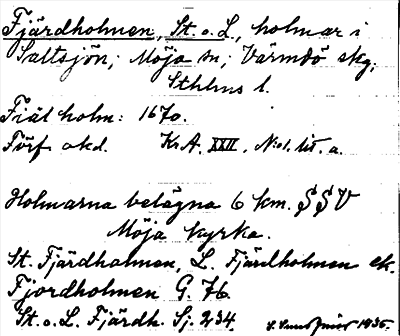 Fjärdholmen, St. o. L., holmar i
Saltsjön, Möja sn, Värmdö skg,
Sthlms l.
Fiäl holm: 1670.
Förf okd. Kr.A. XXII, N:o1. lit. a.
Holmarna belägna 6 km. SSV
Möja kyrka.
St. Fjärdholmen, L. Fjärdholmen ek.
Fjordholmen G. 76.
St. o. L. Fjärdh. Sj. 234.
1935.